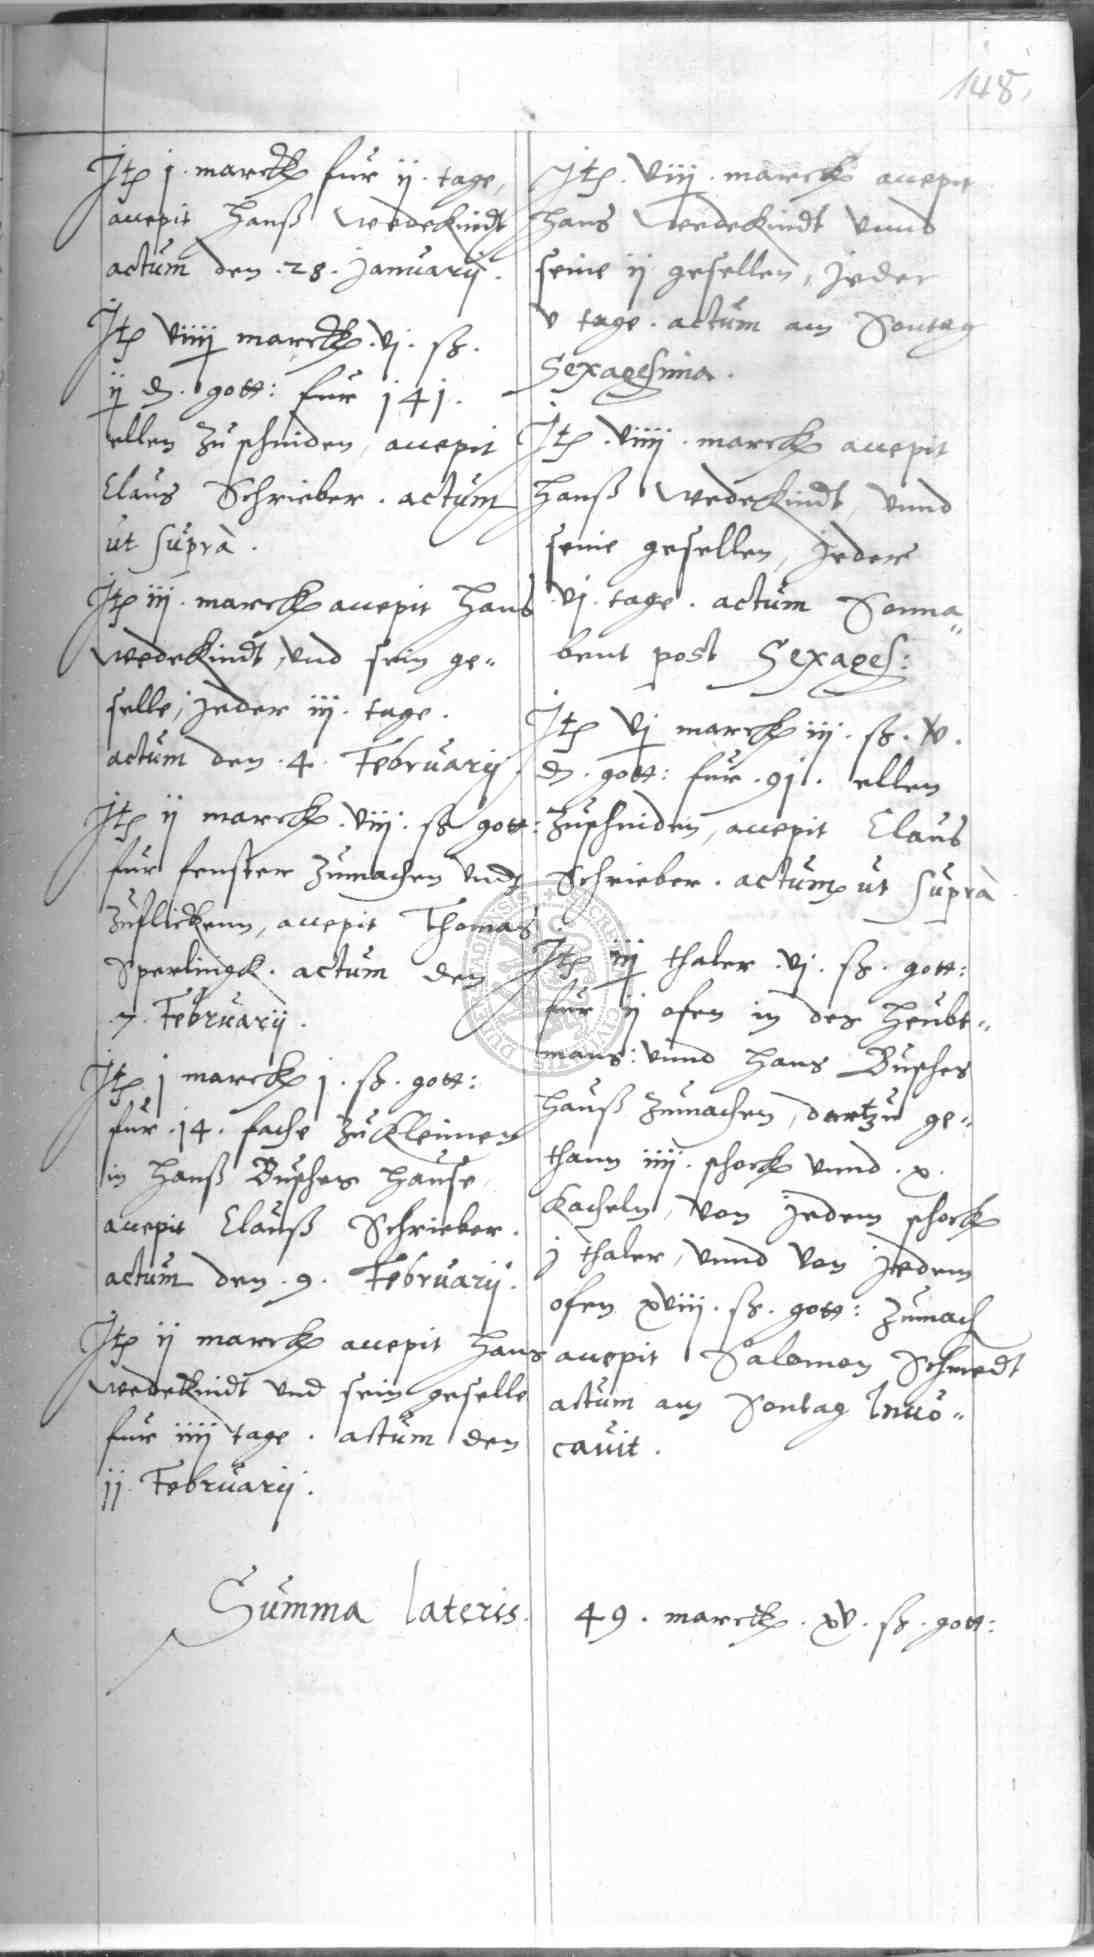 148.
Jtẽ j. marck fur ij. tage,
accepit Hanß Wedekindt
actum den .28. Januarij.
Jtẽ viiij marck .vj. ß.
ij ₰. gott: fur 141.
ellen zu schniden, accepit
Claus Schrieber. actum
ut suprà.
Jtẽ iij. marck accepit Hans
Wedekindt, vnd sein ge-
selle, jeder iij. tage.
actum den .4. Februarij.
Jtẽ ij marck .viij. ß gott:
fur fenster zumachen vndt
zuflickenn, accepit Thomas
Sperlingck. actum den
.7. Februarij.
Jtẽ j marck j. ß. gott:
fur .14. fache zu kleimen
in Hanß Busches hause,
accepit Clauß Schrieber.
actum den .9. Februarij.
Jtẽ ij marck accepit Hans
Wedekindt vnd sein geselle
fur iiij tage. actum den
11. Februarij.
Jtẽ. viij. marck accepit
Hans Wedekindt vnnd
seine ij gesellen, jeder
v tage. actum am Sontag
Sexagesima.
Jtẽ. viiij. marck accepit
Hanß Wedekindt, vnnd
seine gesellen, jeder
.vj. tage. actum Sonna-
bent post Sexages:
Jtẽ vj marck iij. ß. xv.
₰. gott: fur .91. ellen
zuschniden, accepit Claus
Schrieber. actum ut suprà.
Jtẽ iiij thaler .vj. ß. gott:
fur ij ofen in des Heubt-
mans: vnnd Hans Busches
hauß zumachen, dartzu ge-
thann iiij. schock vnnd .x.
kacheln, von jedem schock
j thaler, vnnd von jedem
ofen xviij. ß. gott: zumach
accepit Salomon Schmedt
actum am Sontag Inuo-
cauit.
Summa lateris. 49. marck. xv. ß. gott: